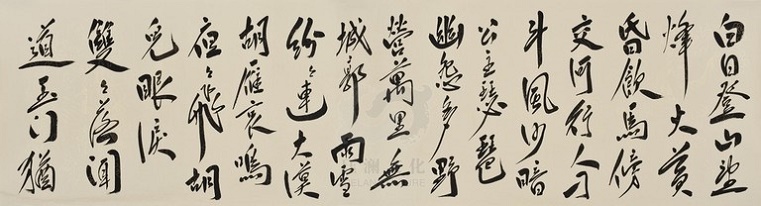 白日登山望
烽火黄
昏飲馬傍
交河行人刁
斗風沙暗
公主琵琶
幽怨多野
營萬里無
城郭雨雪
紛々連大漠
胡雁哀鳴
夜々飛胡
兒眼淚
雙々落聞
道玉门猶